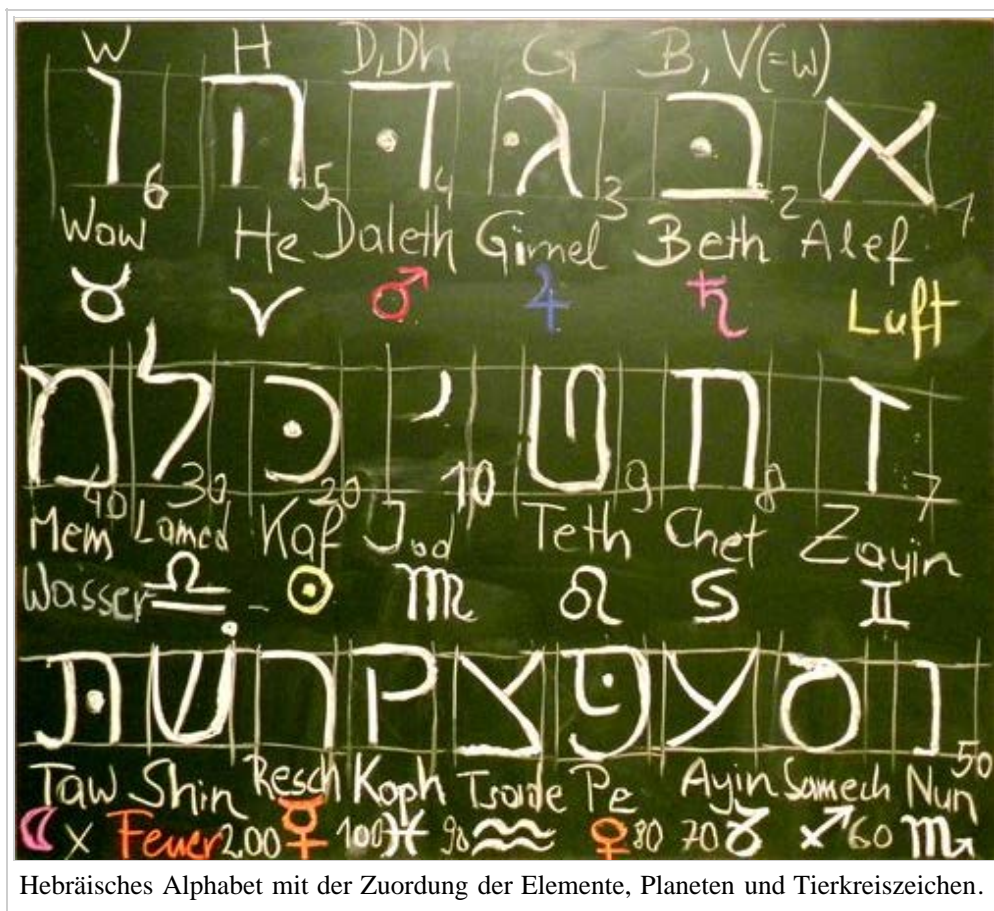 W H D,Dh G B, V(=w)
א בּ גּ דּ ה ו
6 5 4 3 2 1
Waw He Daleth Gimel Beth Alef
♉ ♈ ♂ ♃ ♄ Luft
ז ח ט י כּ ל מ
40 30 20 10 9 8 7
Mem Lamed Kaf Jod Teth Chet Zayin
Wasser ♎ ☉ ♍ ♌ ♋ ♊
נ ס ע פּ צ ק ר שׁ תּ
50
Taw Shin Resch Koph Tsade Pe Ayin Samech Nun
☾ X Feuer 200 ☿ 100 ♓ 90 ♒ ♀ 80 70 ♉ ♐ 60 ♏
Hebräisches Alphabet mit der Zuordung der Elemente, Planeten und Tierkreiszeichen.